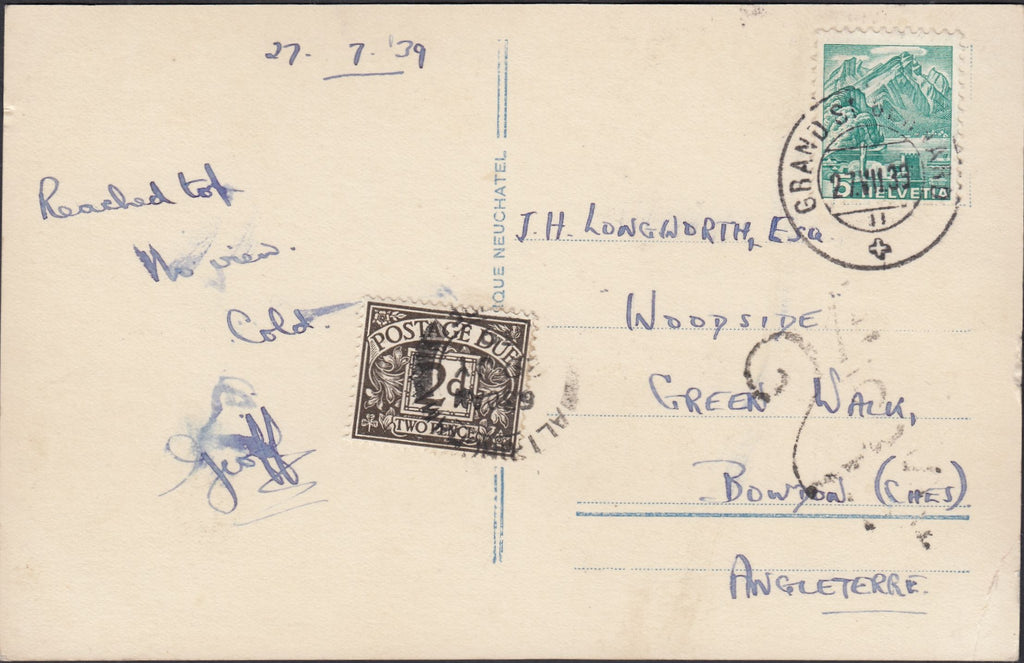 27. 7. '39
Reached top
No view.
Cold.
Geoff
QUE NEUCHATEL
POSTAGE DUE
2d
TWO PENCE
5 HELVETIA
GRAND ST
27.VII.39
J.H. LONGWORTH, ESQ
WOODSIDE
GREEN WALK,
BOWDON (CHES)
ANGLETERRE.
2